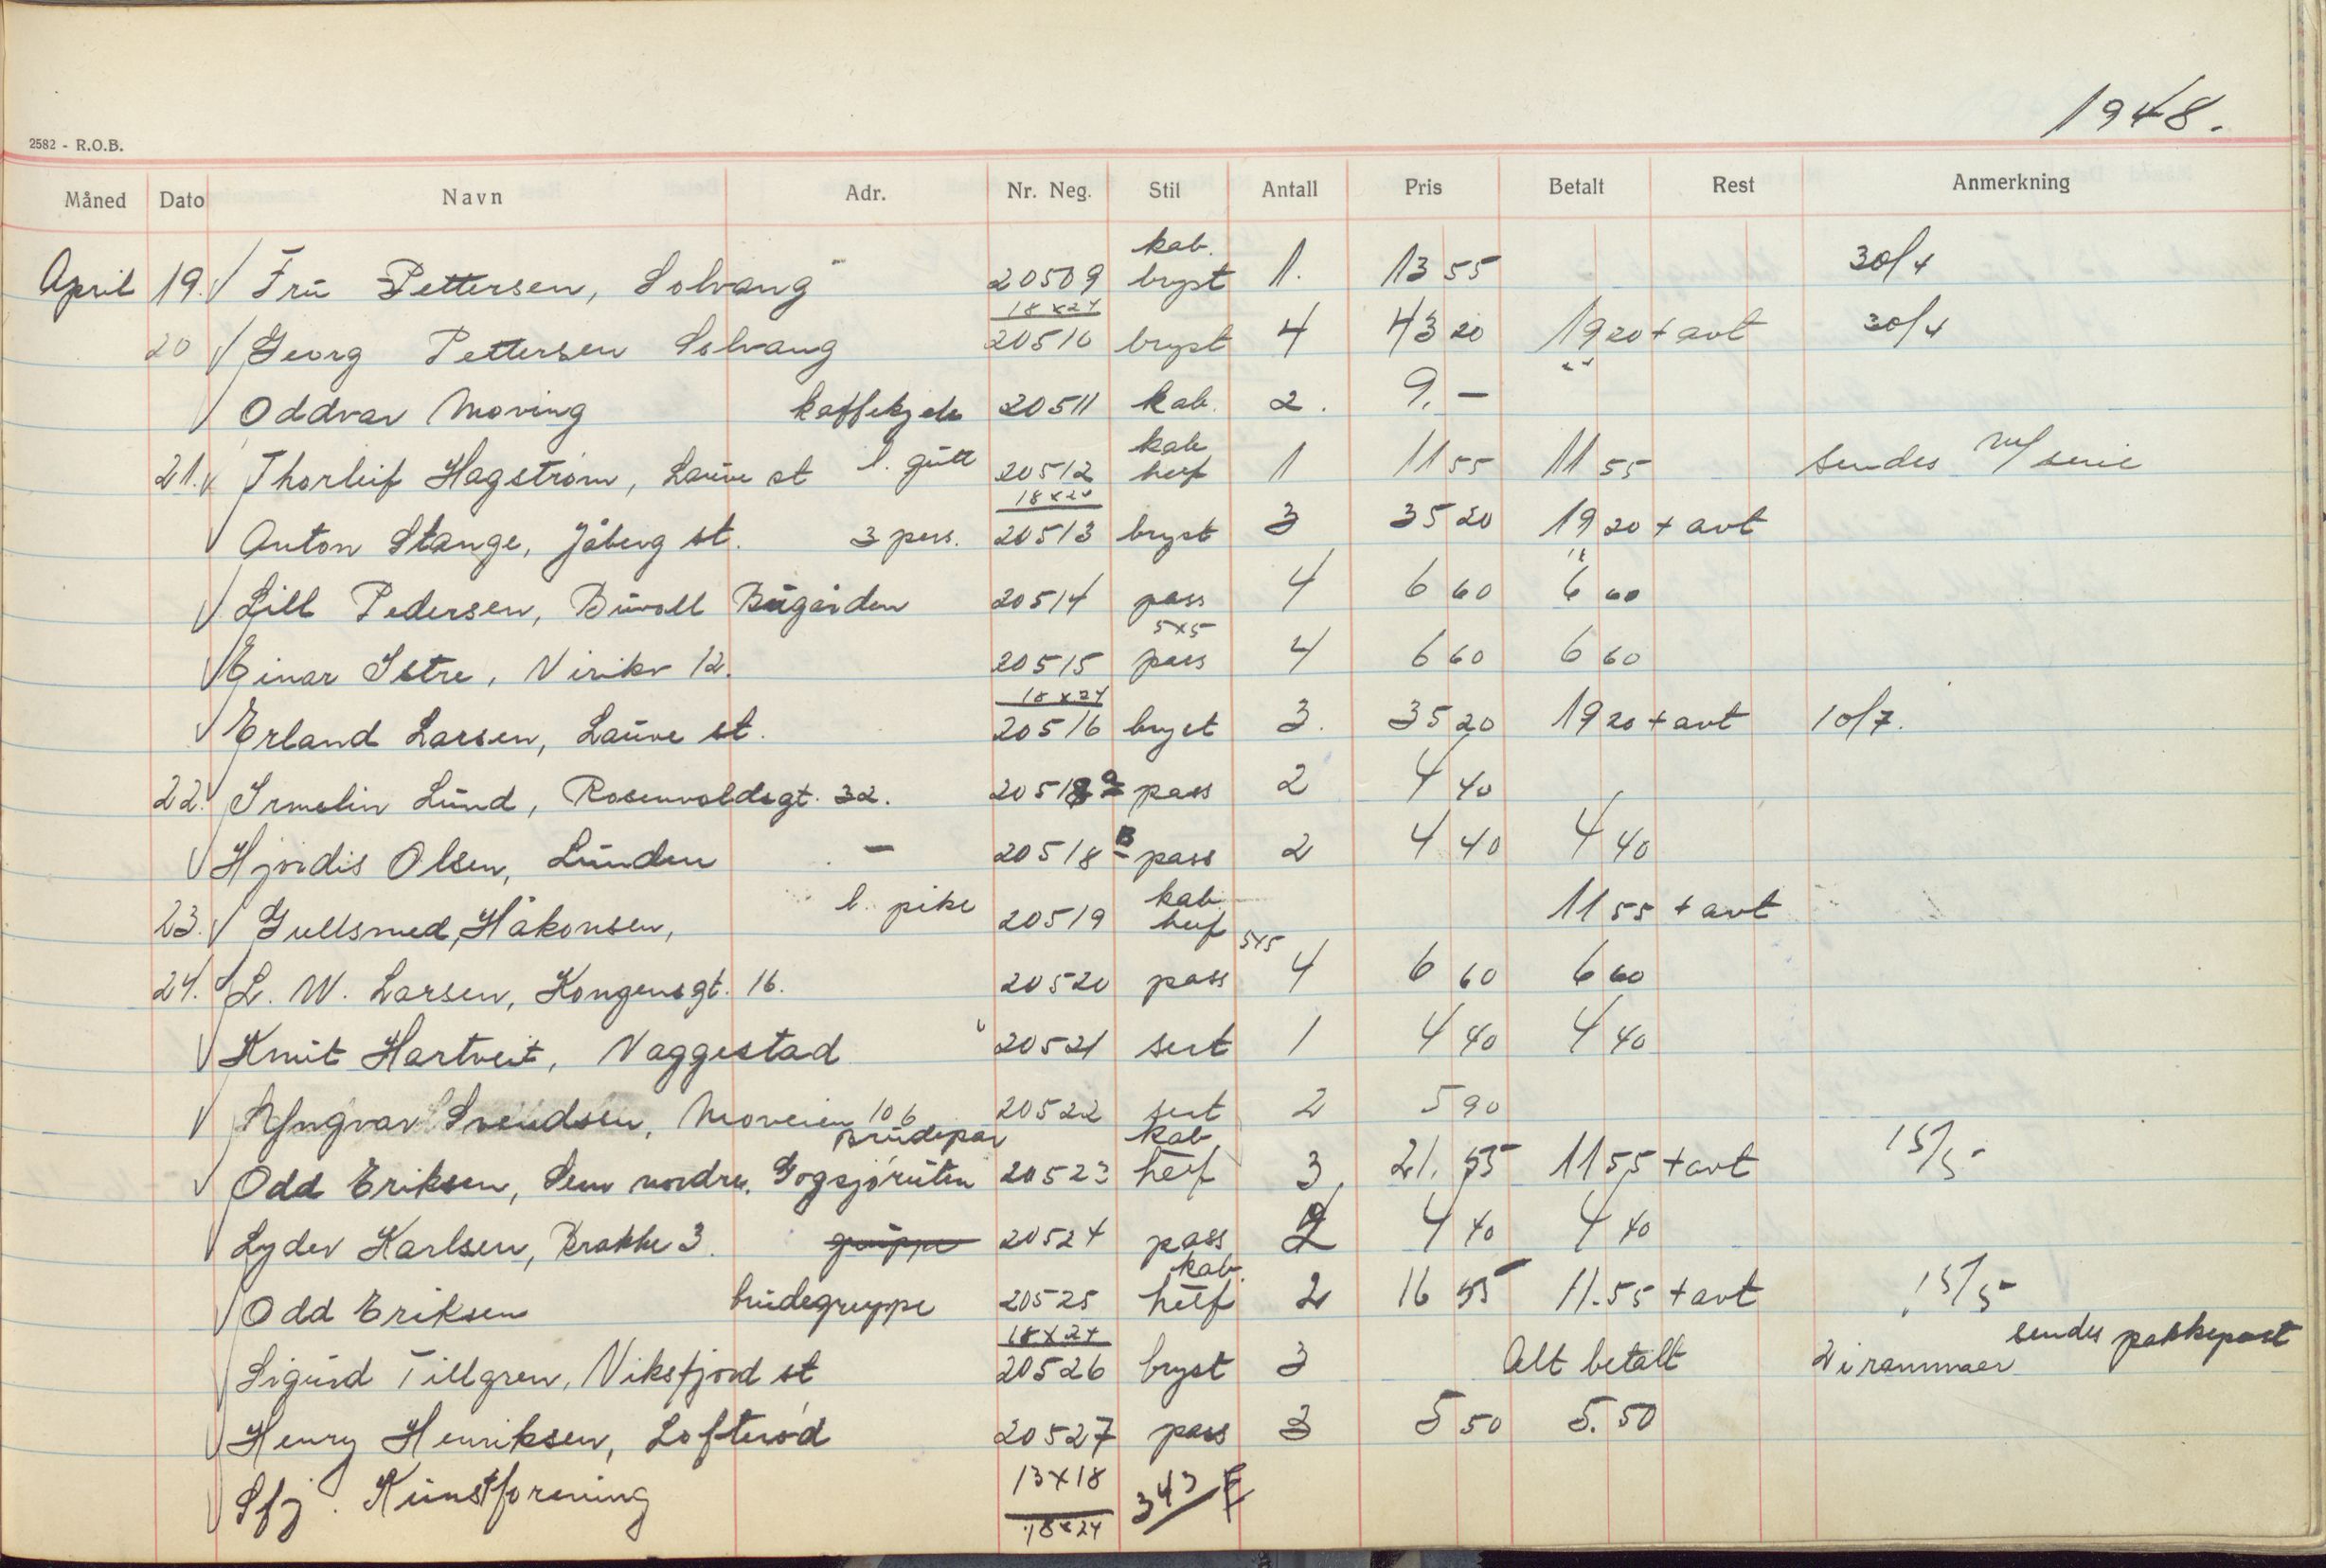 1948.
2582 - R.O.B.
Måned Dato Navn Adr. Nr. Neg. Stil Antall Pris Betalt Rest Anmerkning
April 19. Frü Pettersen, Solvang 20509 kab. bryst 1. 13 55 30/4
20 Georg Pettersen Solvang 18x24 20510 bryst 4 43 20 19 20 + avt 30/4
Oddvar Moving kaffekjele 20511 kab. 2. 9. —
21. Thorleif Hagstrøm, Laüve st l. gütt 20512 kab helf 1 11 55 11 55 sendes m/ serie
Anton Stange, Jåberg st. 3 pers. 18x24 20513 bryst 3 35 20 19 20 + avt
Lill Pedersen, Büvoll Bügården 20514 pass 4 6 60 6 60
Einar Istre, Virikv 12. 20515 5x5 pass 4 6 60 6 60
Erland Larsen, Laüve st. 18x24 20516 bryst 3. 35 20 19 20 + avt 10/7.
22. Irmelin Lünd, Rosenvoldsgt. 32. 20518 a pass 2 4 40
Hjørdis Olsen, Lünden — 20518 B pass 2 4 40 4 40
23. Gullsmed Håkonsen, l. pike 20519 kab. helf 11 55 + avt
24. L. W. Larsen, Kongensgt. 16. 20520 pass 5x5 4 6 60 6 60
Knüt Hartveit, Vaggestad 20521 sert 1 4 40 4 40
Yngvar Svendsen, Moveien 106 20522 sert 2 5 90
Odd Eriksen, Sem nordre, Gogsjørüten brüdepar 20523 kab. helf 3 21. 55 11 55 + avt 15/5
Lyder Karlsen, Brakke 3. grüppe 20524 pass 2 4 40 4 40
Odd Eriksen brüdegruppe 20525 kab. helf 2 16 55 11.55 + avt 15/5
Sigürd Tillgren, Viksfjord st 18x24 20526 bryst 3 Alt betalt 2 i rammer sendes pakkepost
Henry Henriksen, Lofterød 20527 pass 3 5 50 5. 50
Sfj. Künstforening 13x18 18x24 343